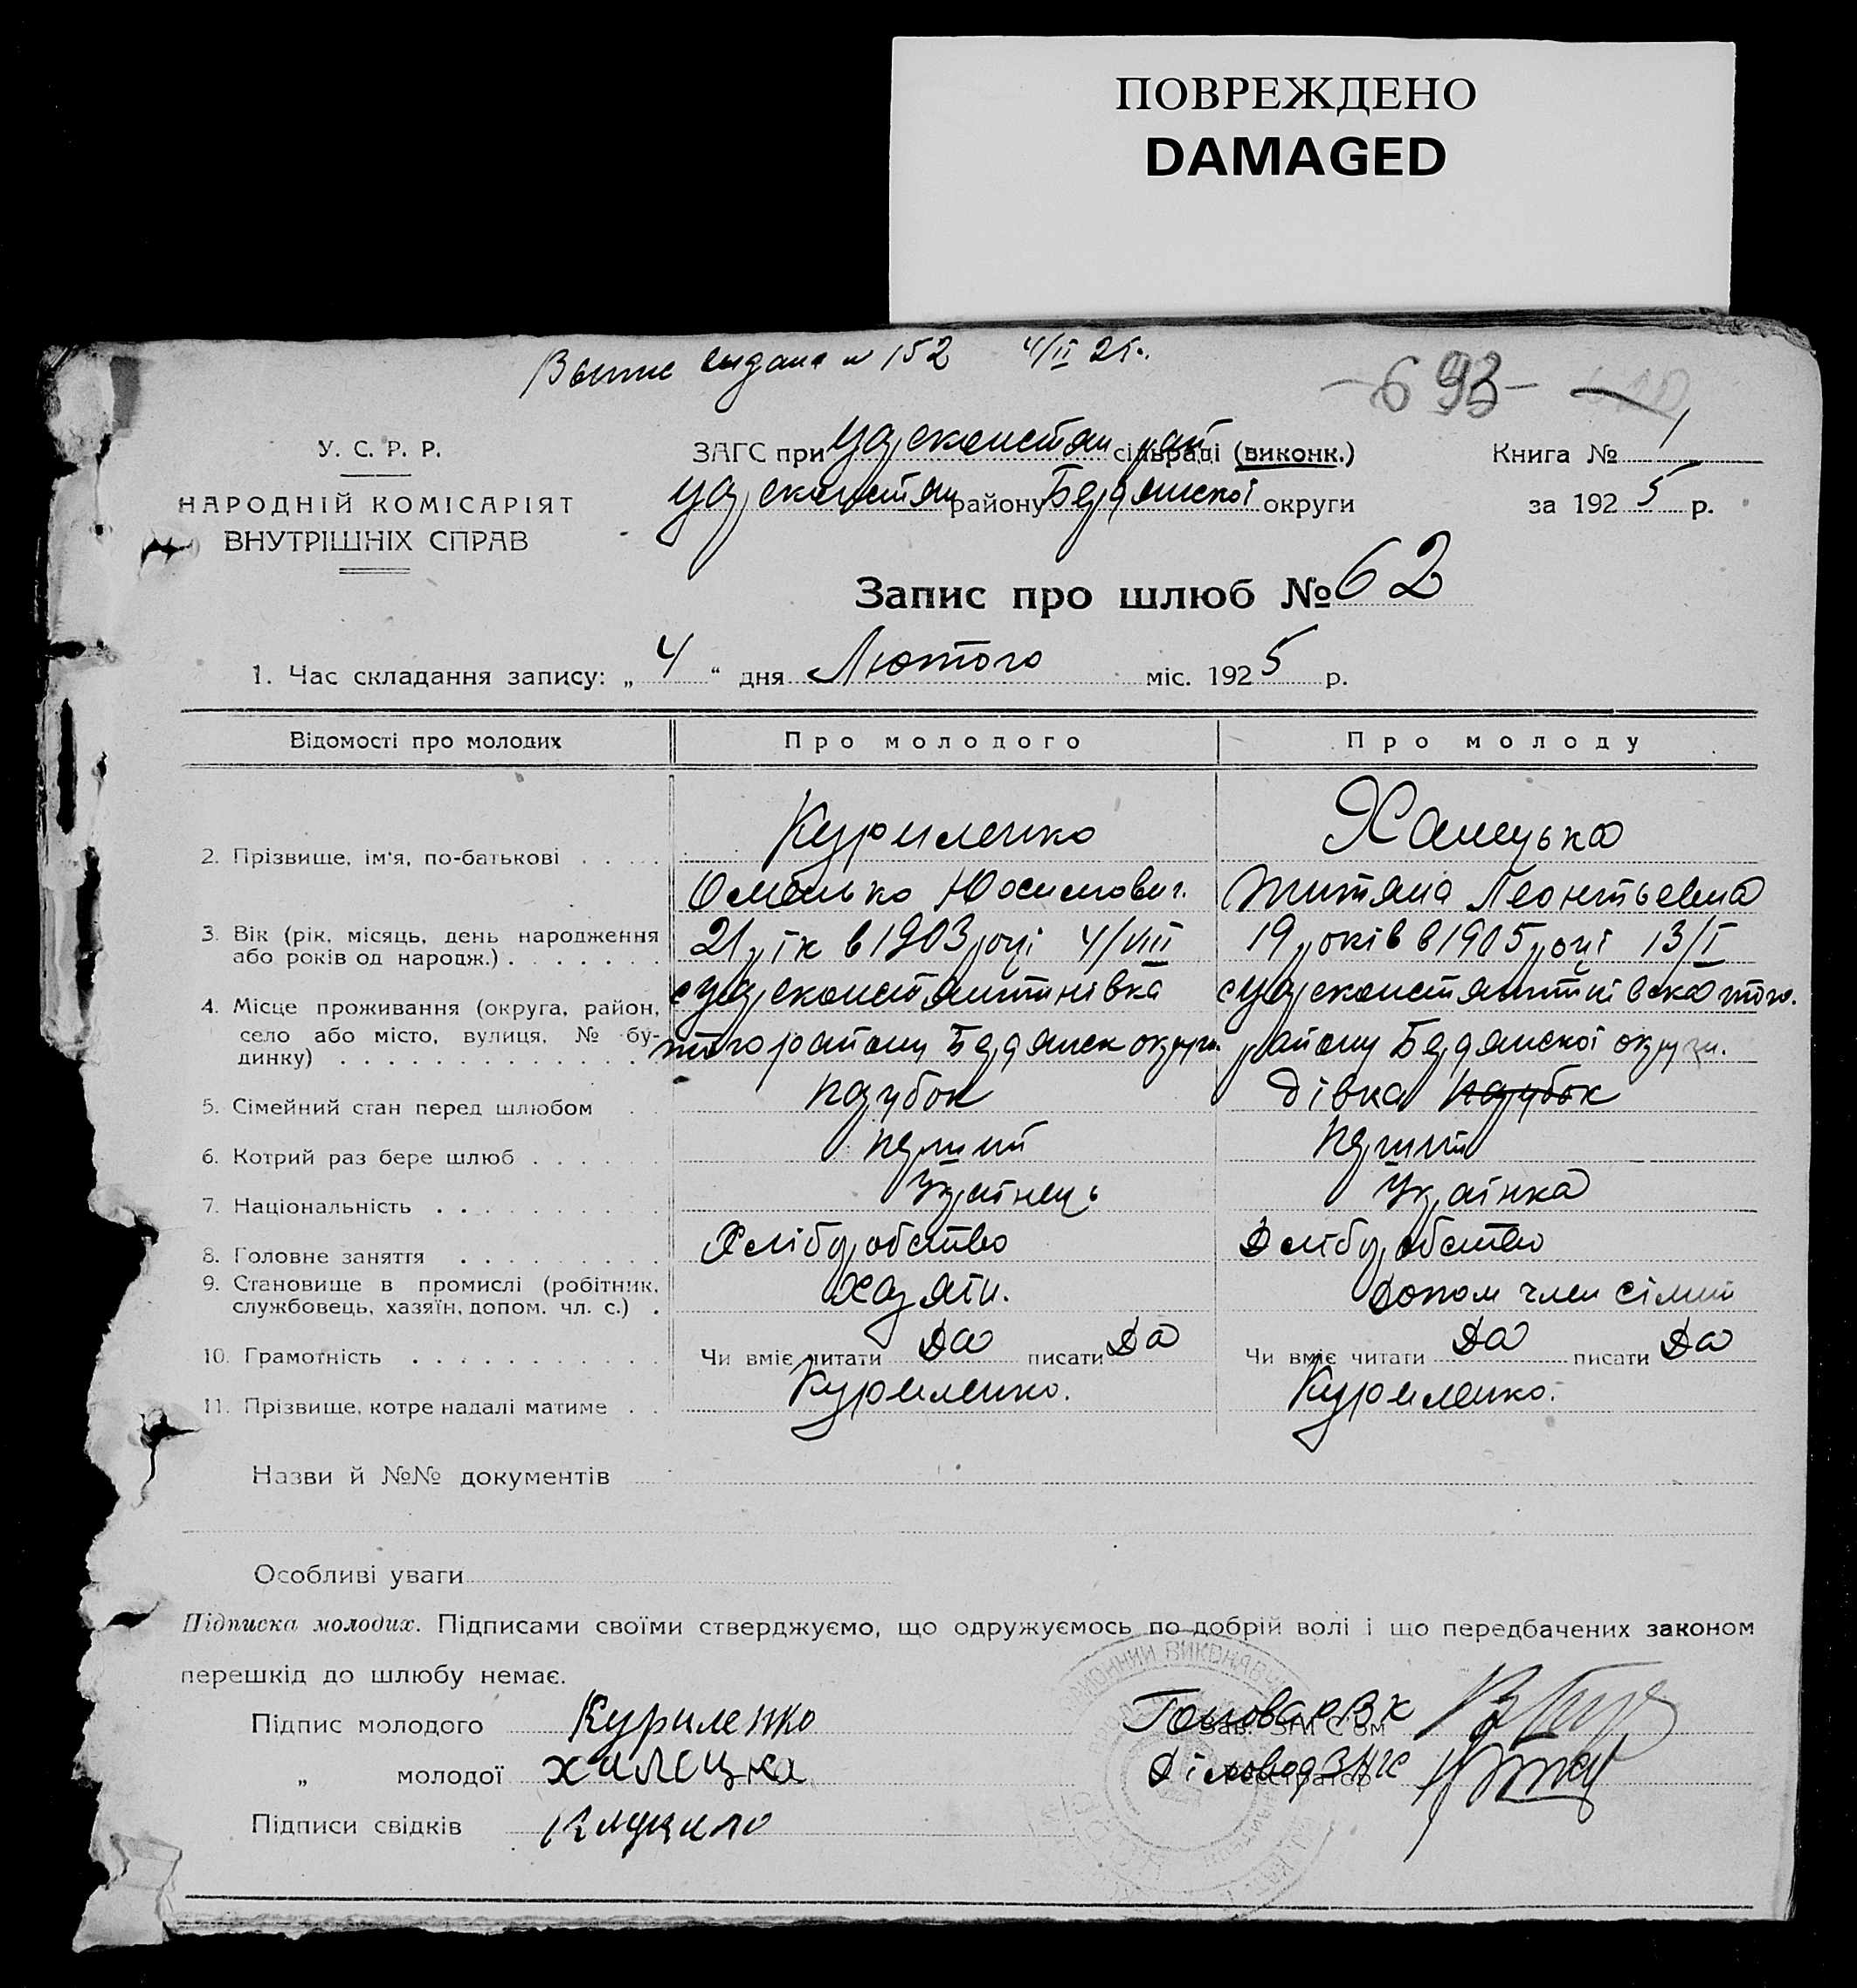 ПОВРЕЖДЕНО
DAMAGED
Выпис видана № 152 4/II 25г.
-693-
У. С. Р. Р.
НАРОДНІЙ КОМІСАРІЯТ
ВНУТРІШНІХ СПРАВ
ЗАГС при Царсконстан рай сільраді (виконк.)
Царсконстан району Бердянської округи
Книга № 1
за 1925 р.
Запис про шлюб № 62
1. Час складання запису: „4“ дня Лютого міс. 1925 р.
Відомості про молодих Про молодого Про молоду
2. Прізвище, ім'я, по-батькові Куриленко Халецька
Омелько Юосипович. Титяна Леонтьевна
3. Вік (рік, місяць, день народження або років од народж.) 21 рік в 1903 році 4/VIII 19 років в 1905 році 13/I
4. Місце проживання (округа, район, село або місто, вулиця, № будинку) с Царсконстантинівка с Царсконстянтинівска того.
того району Бердянск округи. району Бердянскої округи.
5. Сімейний стан перед шлюбом парубок дівка парубок
6. Котрий раз бере шлюб перший перший
7. Національність Українець Українка
8. Головне заняття Хліборобство Хліборобство
9. Становище в промислі (робітник, службовець, хазяїн, допом. чл. с.) хазяїн. допом член сімїи
10. Грамотність Чи вміє читати Да писати Да Чи вміє читати Да писати Да
11. Прізвище, котре надалі матиме Куриленко. Куриленко.
Назви й №№ документів
Особливі уваги
Підписка молодих. Підписами своїми стверджуємо, що одружуємось по добрій волі і що передбачених законом
перешкід до шлюбу немає.
Підпис молодого Куриленко Голова РВК
„ молодої халецка Діловод ЗАГС
Підписи свідків